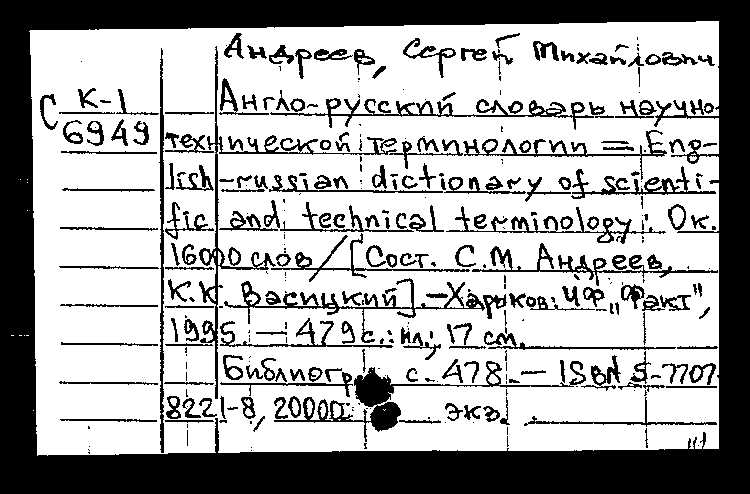 Андреев, Сергей Михайлович.
С К-1
6949
Англо-русский словарь научно-
технической терминологии = Eng-
lish-russian dictionary of scienti-
fic and technical terminology: Ок.
16000 слов / [Сост. С.М. Андреев,
К.К. Васицкий]. – Харьков: ИФ „Факт",
1995. – 479 с.: ил.; 17 см.
Библиогр с. 478. – ISBN 5-7707-
8221-8, экз.